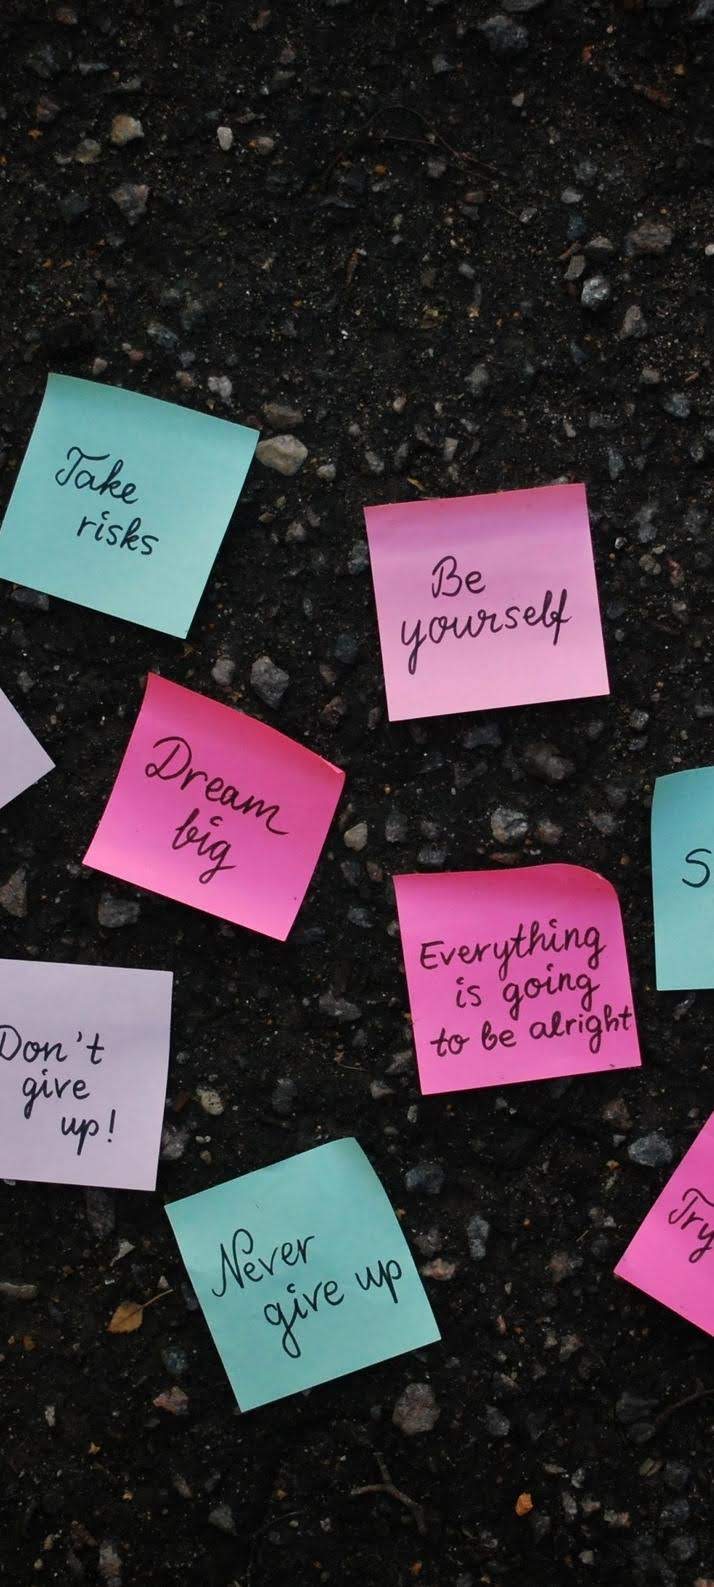 Take
risks
Be
yourself
Dream
big
S
Everything
is going
to be alright
Don't
give
up!
Try
Never
give up